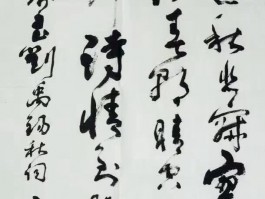 秋悲寂寥
春朝晴空
诗情到
劉禹锡秋词